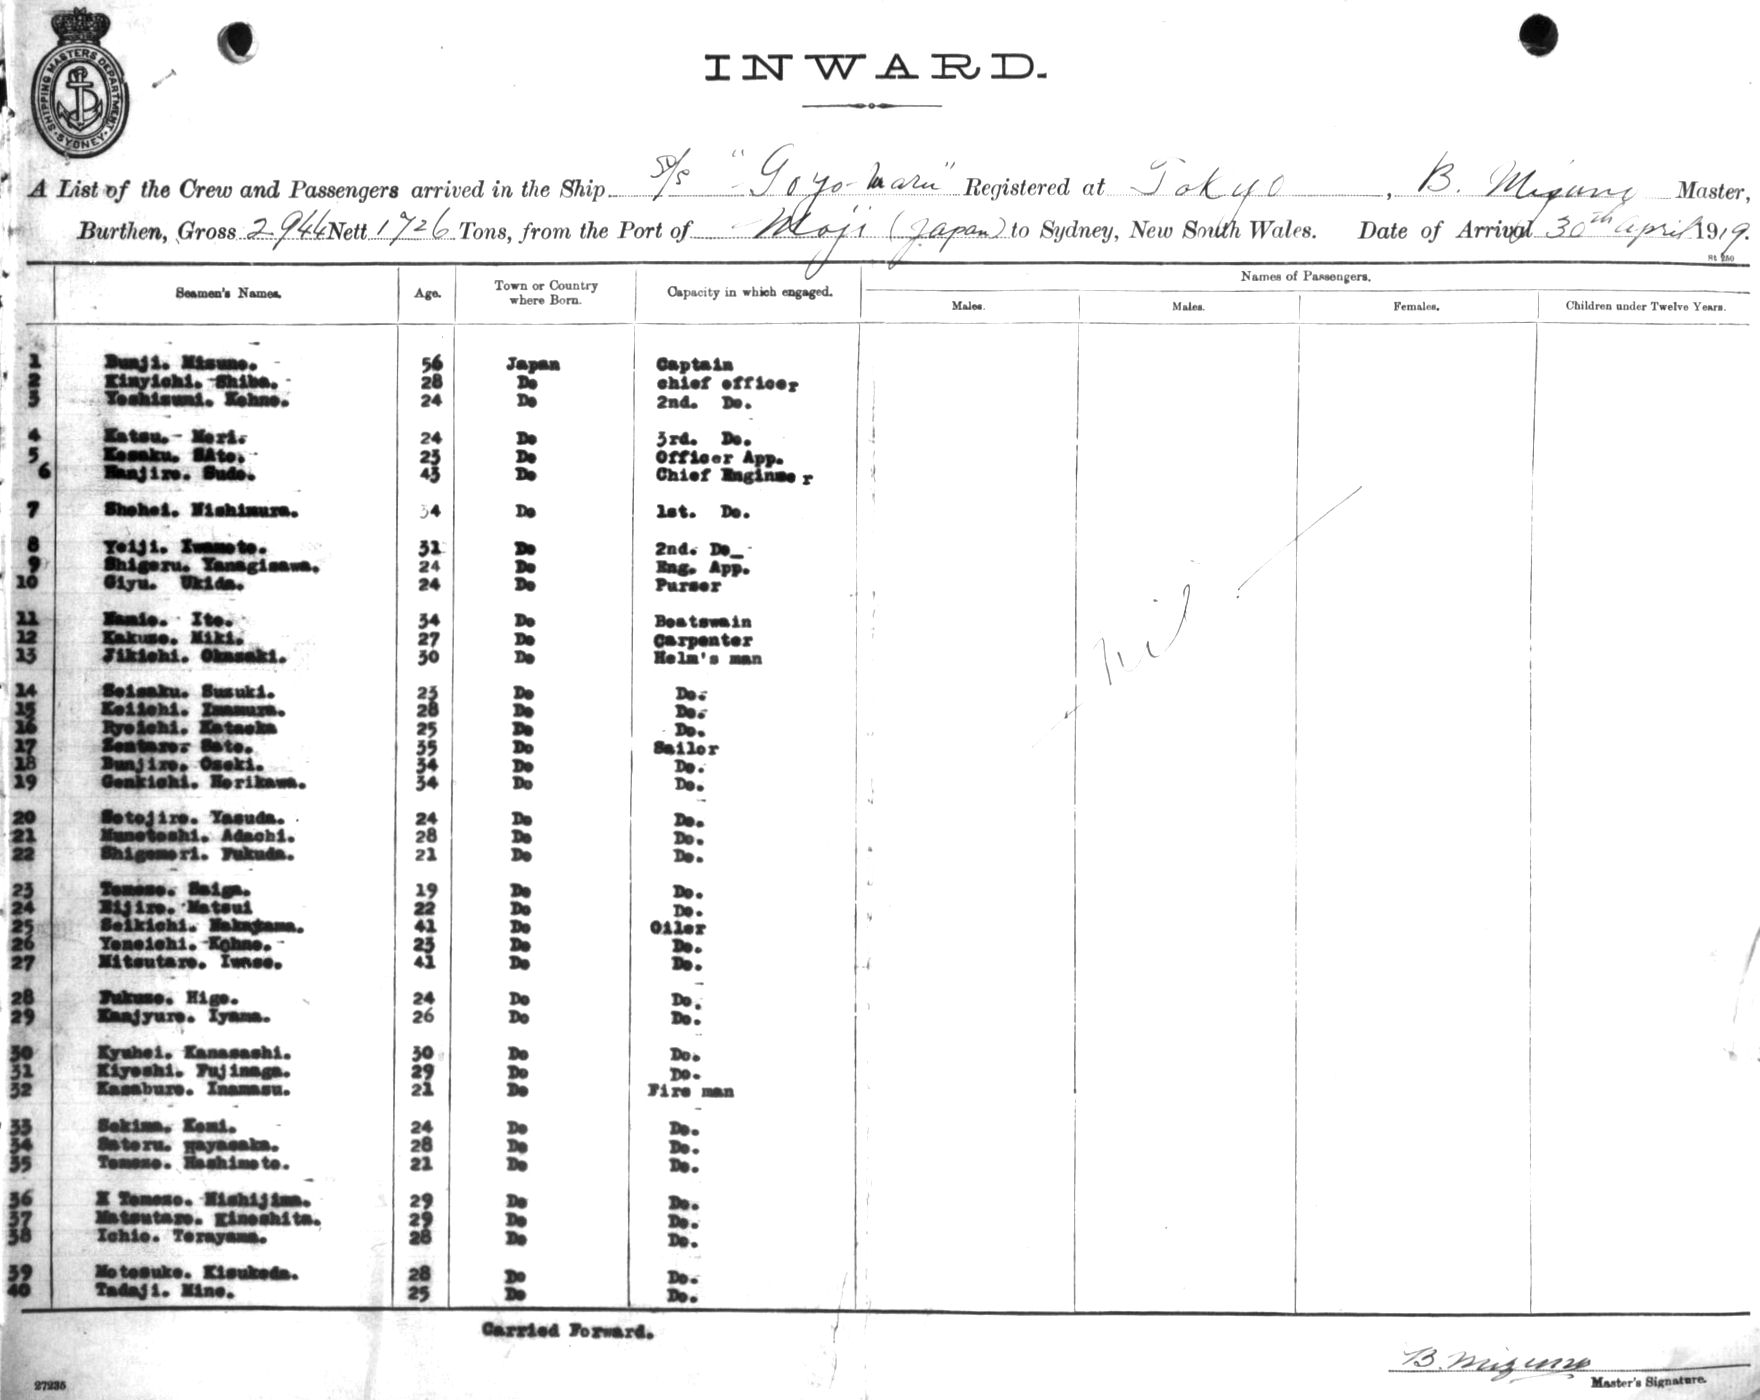 SHIPPING MASTERS DEPARTMENT
SYDNEY
INWARD.
A List of the Crew and Passengers arrived in the Ship S/S "Goyo-Maru" Registered at Tokyo, B. Mizuno Master,
Burthen, Gross 2944 Nett 1726 Tons, from the Port of Moji (Japan) to Sydney, New South Wales. Date of Arrival 30th April 1919.
St 250
Names of Passengers.
Seamen's Names. Age. Town or Country where Born. Capacity in which engaged. Males. Males. Females. Children under Twelve Years.
1 Bunji. Misuno. 56 Japan Captain
2 Kinyichi. Shiba. 28 Do chief officer
3 Yoshisumi. Kohno. 24 Do 2nd. Do.
4 Katsu. Mori. 24 Do 3rd. Do.
5 Kosaku. SAto. 23 Do Officer App.
6 Hanjiro. Sudo. 43 Do Chief Engineer
7 Shohei. Nishimura. 34 Do 1st. Do.
8 Yeiji. Iwamoto. 31 Do 2nd. Do
9 Shigeru. Yanagisawa. 24 Do Eng. App.
10 Giyu. Ukida. 24 Do Purser
11 Ito. 34 Do Boatswain
12 Kakuzo. Miki. 27 Do Carpenter
13 Jikichi. Okasaki. 30 Do Helm's man
14 Seisaku. Suzuki. 23 Do Do.
15 Keiichi. Imamura. 28 Do Do.
16 Ryoichi. Kataoka 25 Do Do.
17 Zentaro. Sato. 35 Do Sailor
18 Bunjiro. Oseki. 34 Do Do.
19 Genkichi. Horikawa. 34 Do Do.
20 Sotojiro. Yasuda. 24 Do Do.
21 Munetoshi. Adachi. 28 Do Do.
22 Shigemori. Fukuda. 21 Do Do.
23 Tomezo. Saiga. 19 Do Do.
24 Eijiro. Matsui 22 Do Do.
25 Seikichi. Nakayama. 41 Do Oiler
26 Yoneichi. Kohno. 23 Do Do.
27 Mitsutaro. Iwase. 41 Do Do.
28 Fukuzo. Higo. 24 Do Do.
29 Kanjyuro. Iyama. 26 Do Do.
30 Kyuhei. Kanasashi. 30 Do Do.
31 Kiyoshi. Fujinaga. 29 Do Do.
32 Kasaburo. Inamasu. 21 Do Fire man
33 Sekima. Komi. 24 Do Do.
34 Satoru. Hayasaka. 28 Do Do.
35 Tomezo. Hashimoto. 21 Do Do.
36 Tomezo. Nishijima. 29 Do Do.
37 Matsutaro. Kinoshita. 29 Do Do.
38 Ichio. Terayama. 28 Do Do.
39 Motosuke. Kisukeda. 28 Do Do.
40 Tadaji. Mine. 25 Do Do.
- Nil -
Carried Forward.
B. Mizuno
Master's Signature.
27235